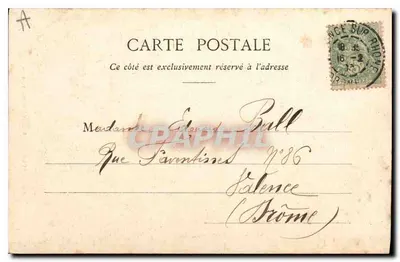 A
CARTE POSTALE
Ce côté est exclusivement réservé à l'adresse
NCE SUR RHONE
16 -2
Madame Edgard Ball
Rue N° 86
Valence
(Drôme)
CPAPHIL.COM